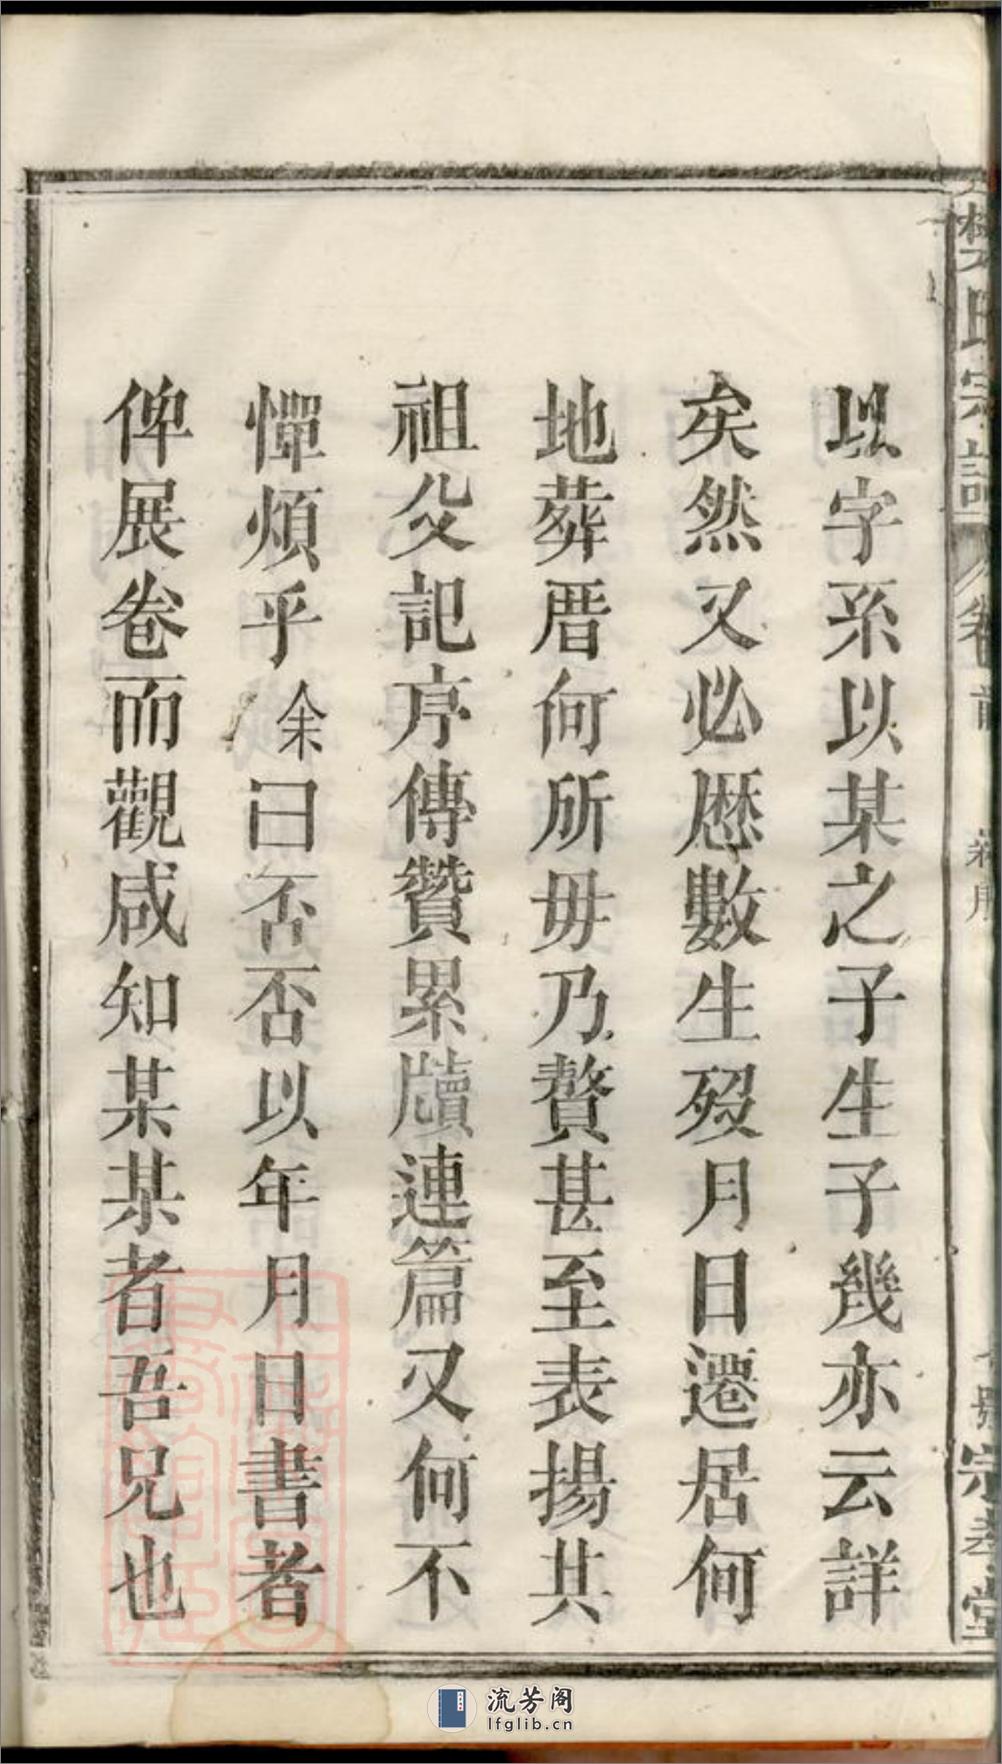 樊氏宗譜
卷前
以字系以某之子生子幾亦云詳
矣然又必歷數生歿月日遷居何
地葬厝何所毋乃贅甚至表揚其
祖父記序傳贊累牘連篇又何不
憚煩乎余曰否否以年月日書者
俾展卷而觀咸知某某者吾兄也
流芳阁
lfglib.cn